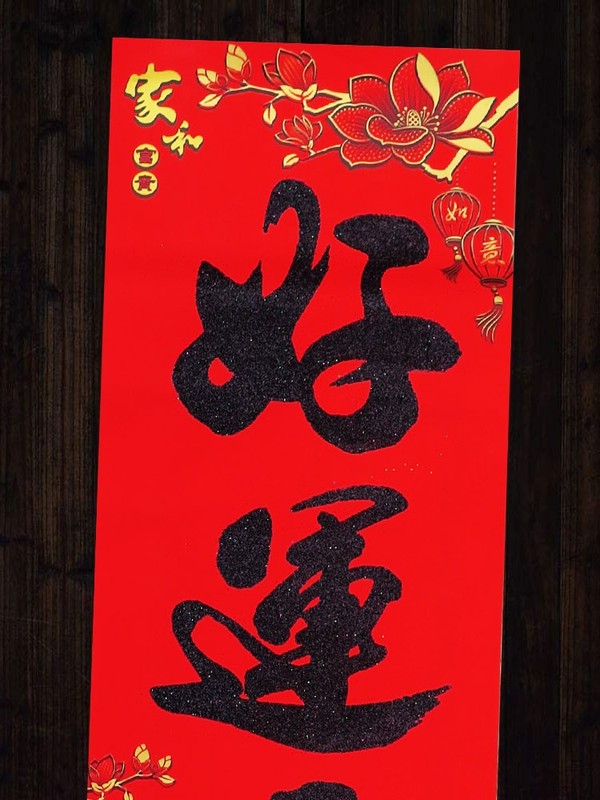 家和
富貴
如意
好運